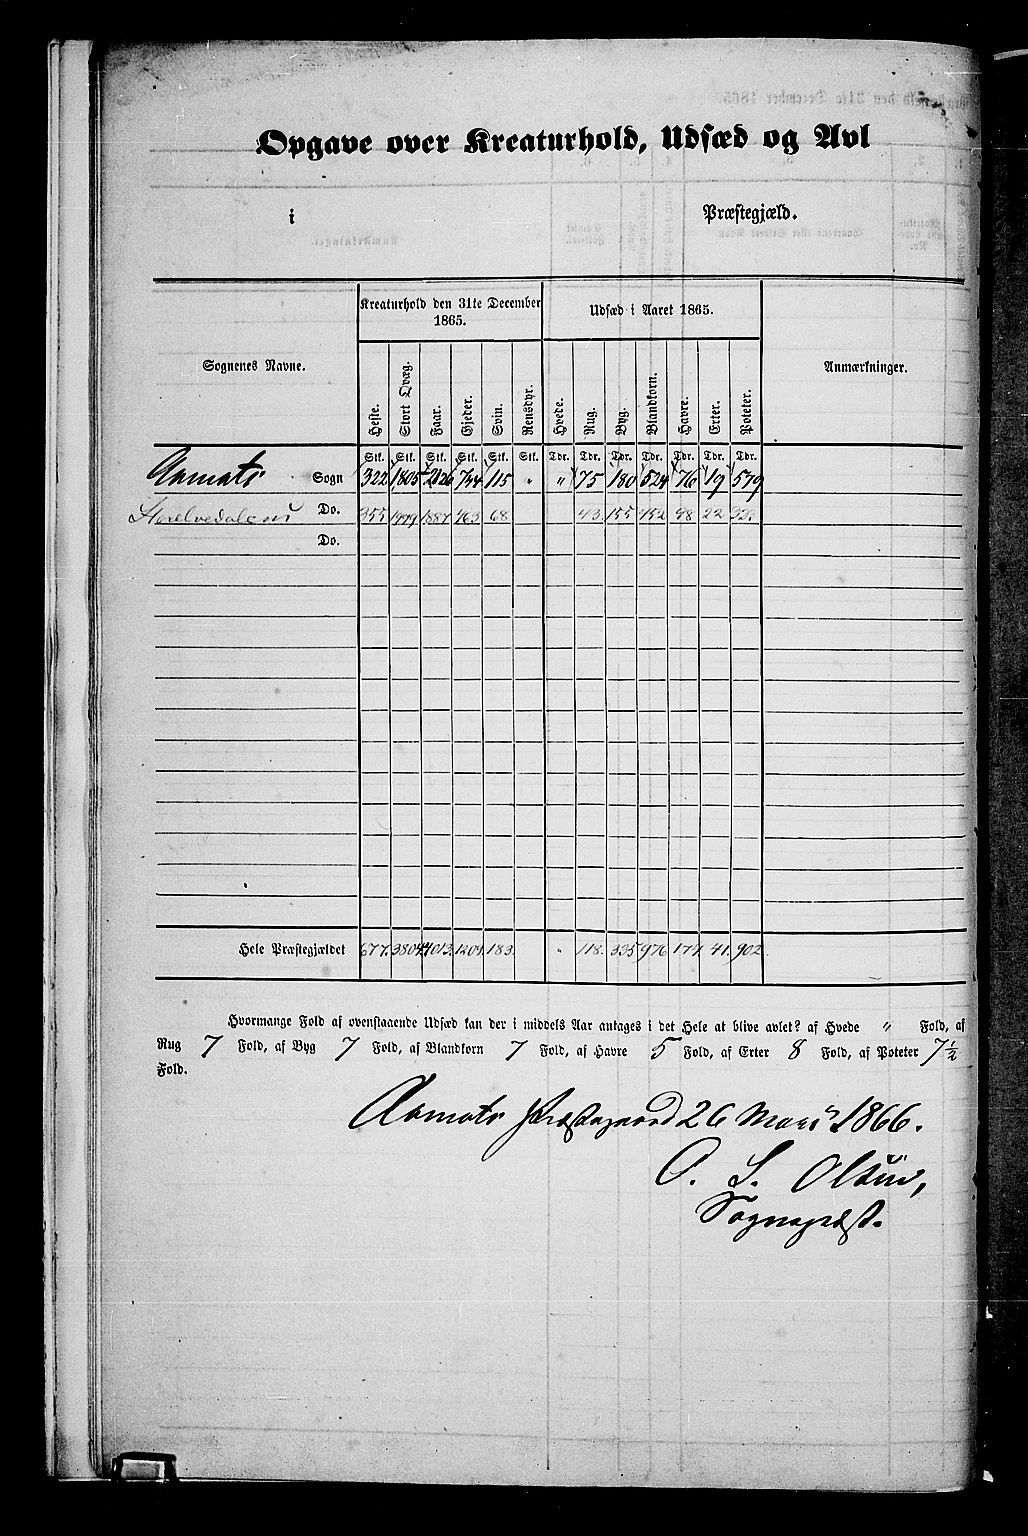 Opgave over Kreaturhold, Udsæd og Avl
i Præstegjæld.
Sognenes Navne. Kreaturhold den 31te December 1865. Udsæd i Aaret 1865. Anmærkninger.
Heste. Stort Qvæg. Faar. Gjeder. Svin. Rensdyr. Hvede. Rug. Byg. Blandkorn. Havre. Erter. Poteter.
Stk. Stk. Stk. Stk. Stk. Stk. Tdr. Tdr. Tdr. Tdr. Tdr. Tdr. Tdr.
Aamots Sogn 322 1805 2126 744 115 " " 75 180 524 76 19 579
Storelvedalens Do. 355 1999 1887 463 68 43 155 452 98 22 323
Do.
Hele Præstegjældet 677. 3804. 4013. 1207. 183. " 118. 335 976 174. 41. 902.
Hvormange Fold af ovenstaaende Udsæd kan der i middels Aar antages i det Hele at blive avlet? af Hvede " Fold, af
Rug 7 Fold, af Byg 7 Fold, af Blandkorn 7 Fold, af Havre 5 Fold, af Erter 8 Fold, af Poteter 7 ½
Fold.
Aamots Præstegaard 26 Marts 1866.
O. S. Olsen,
Sognepræst.